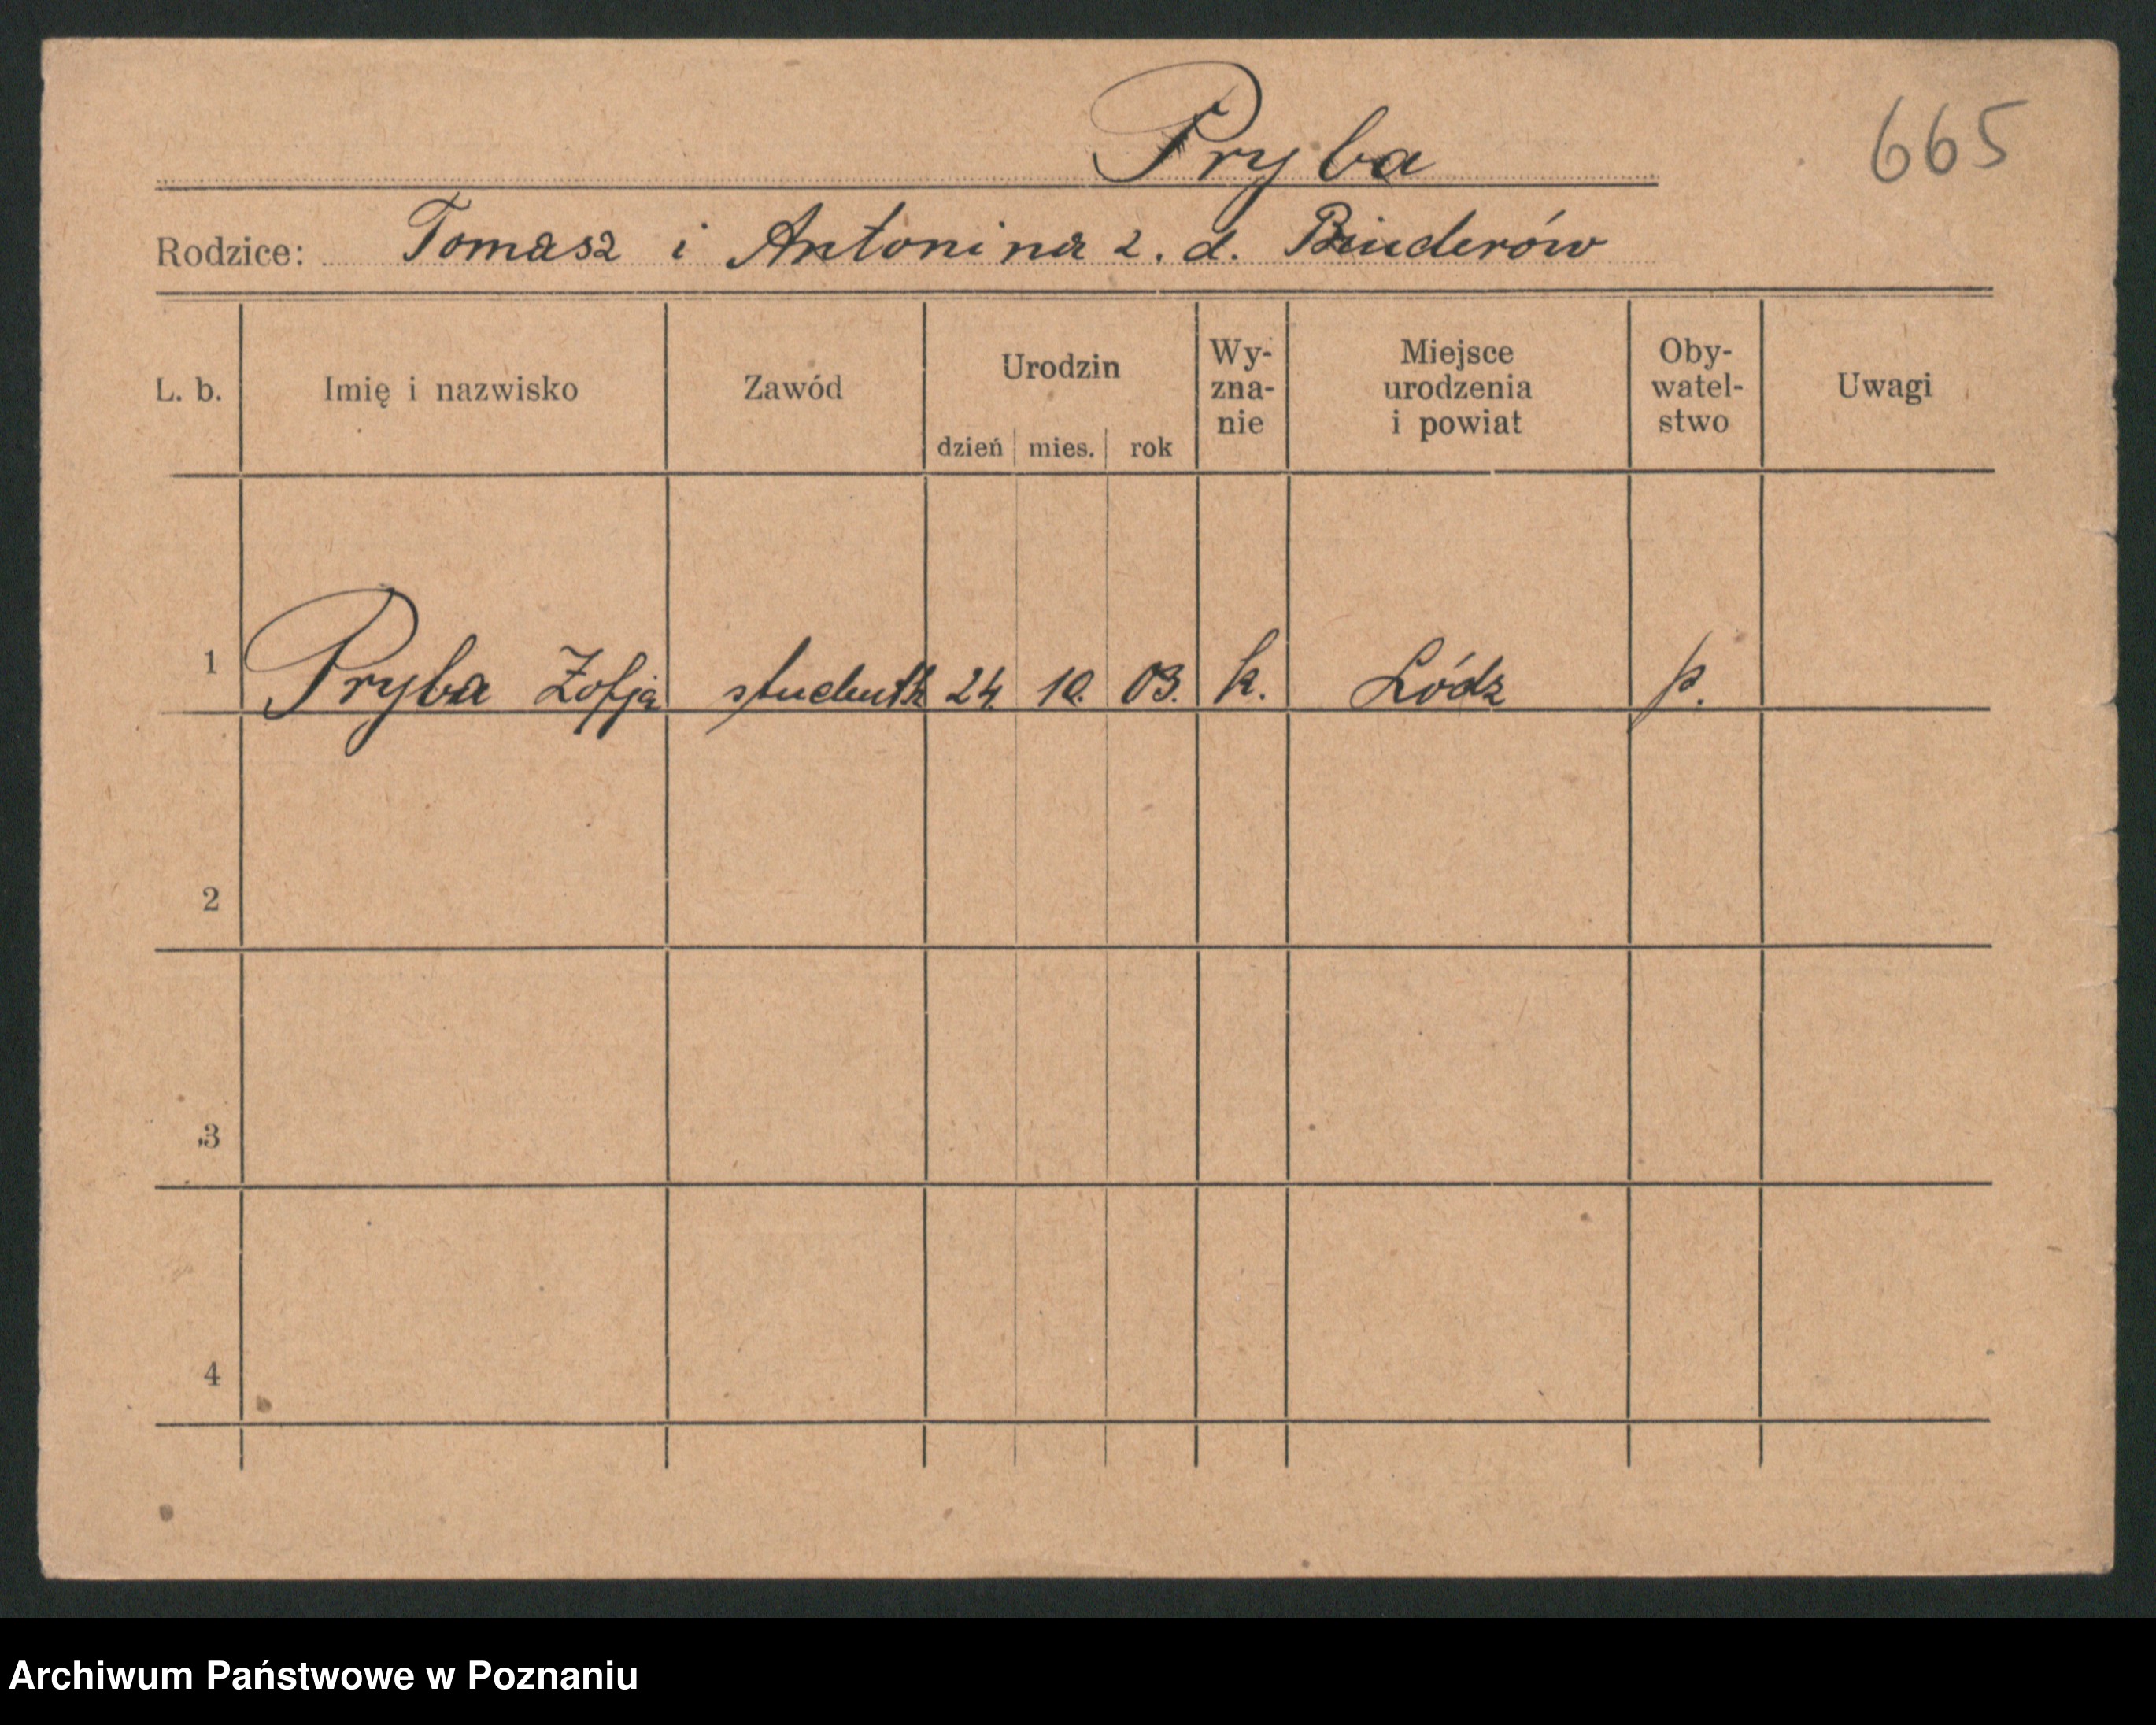 Pryba
665
Rodzice: Tomasz i Antonina z. d. Binderów
L. b. Imię i nazwisko Zawód Urodzin dzień mies. rok Wy-zna-nie Miejsce urodzenia i powiat Oby-watel-stwo Uwagi
1 Pryba Zofja studentk 24. 10. 03. k. Łódz p.
2
3
4
Archiwum Państwowe w Poznaniu